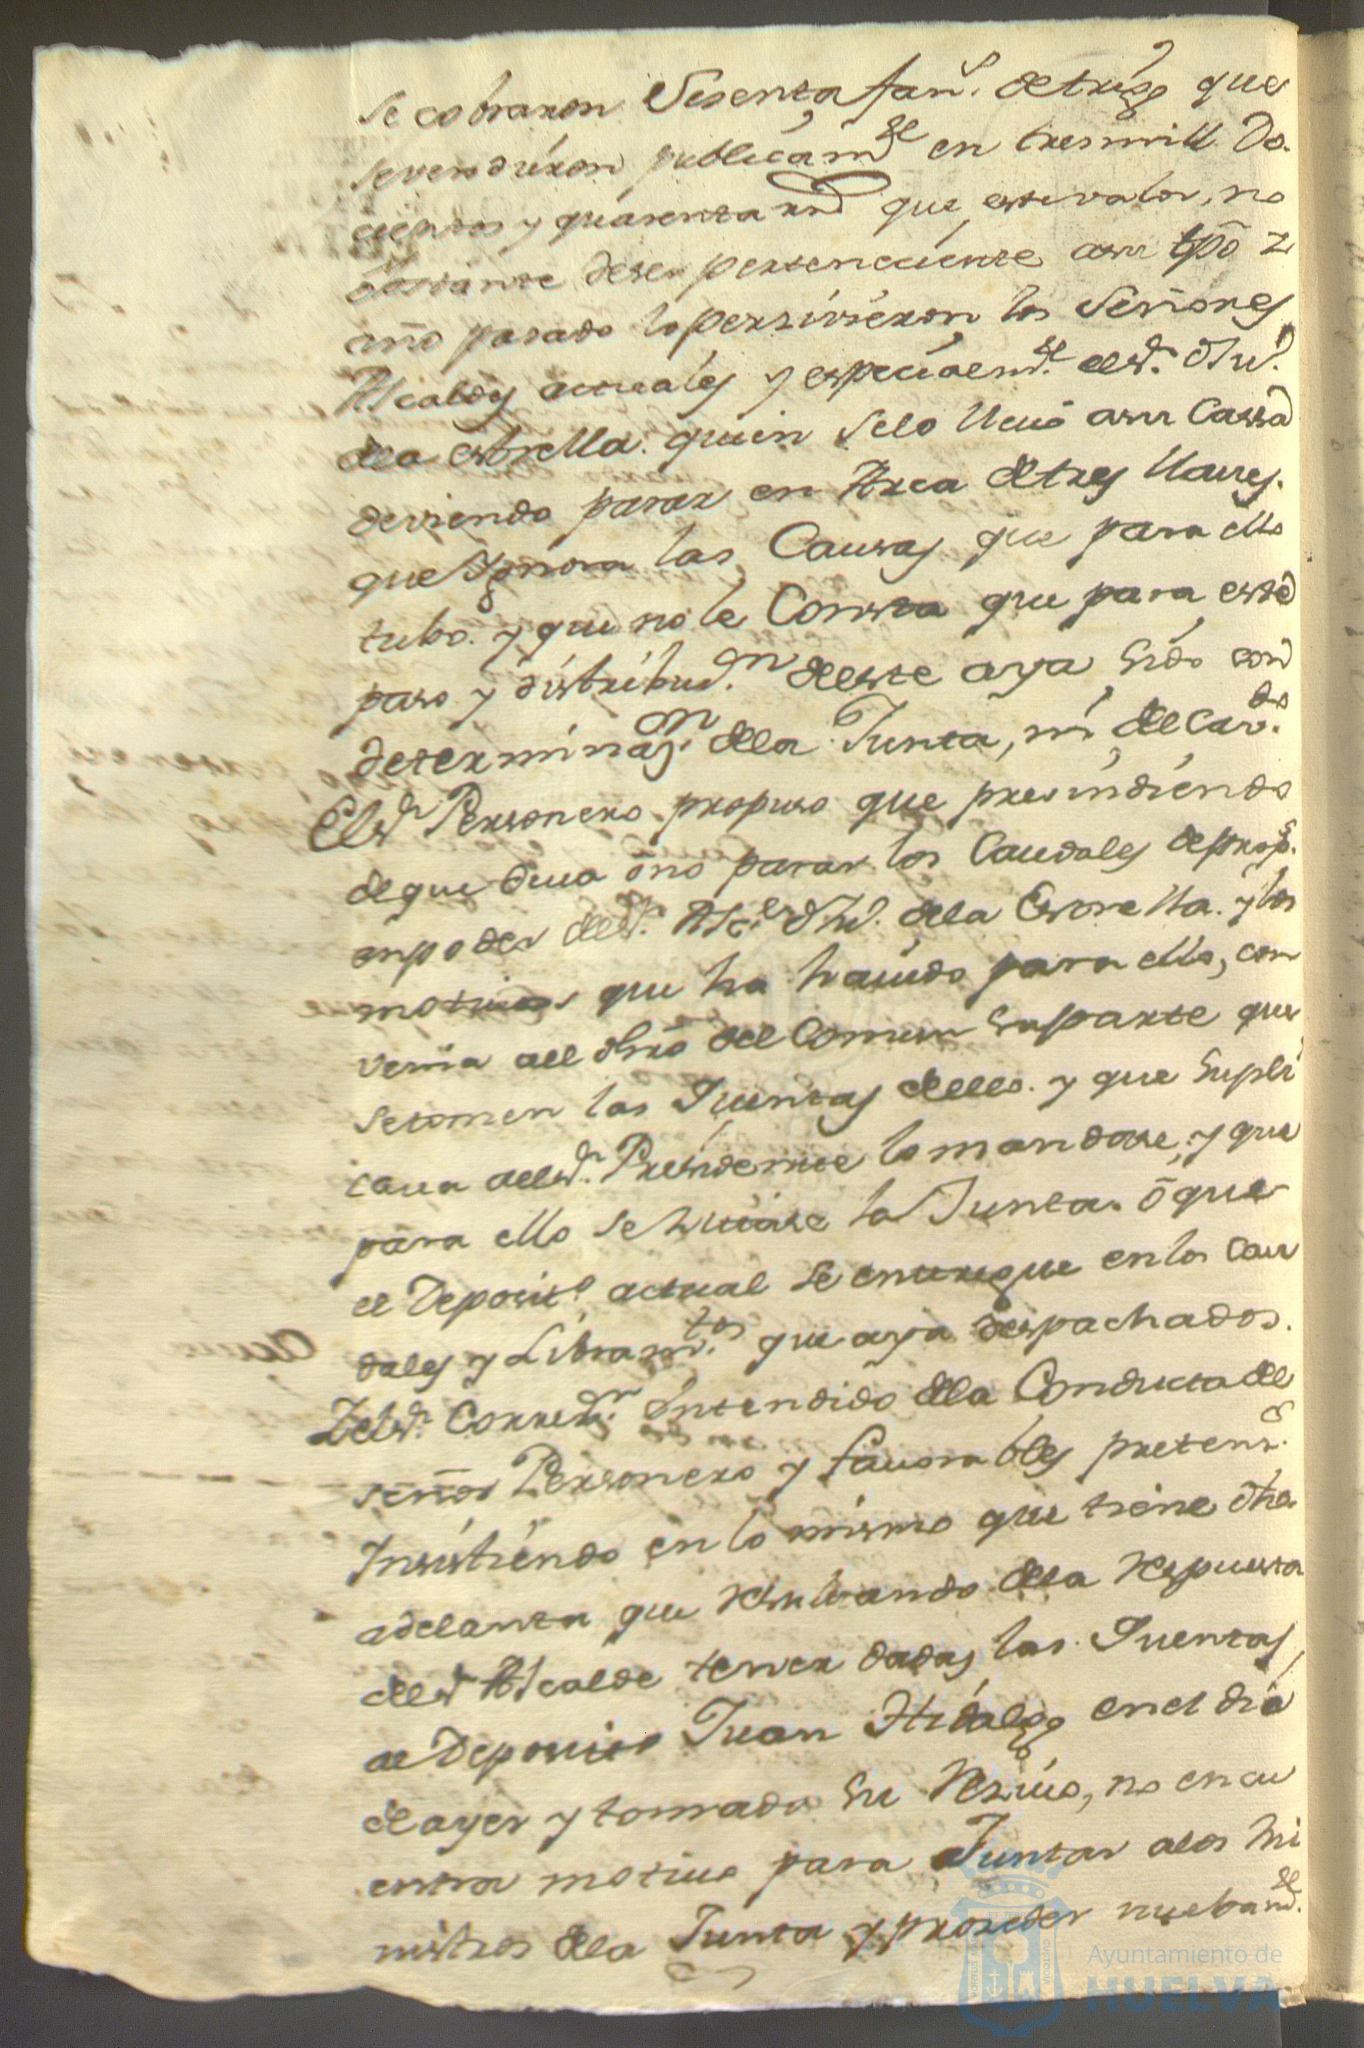 se cobraron Sesenta fans. de trigo que
se vendieron publicamte en tres mill Do
cientos y quarenta rrs que este valor, no
obstante de ser perteneciente a su tpõ y
año pasado lo persivieron los Señores
Alcaldes actuales y especialmte. el sr. dn Ju.
de la estrella. quien selo llevó a su Cassa
deviendo parar en Arca de tres llaves.
que Ygnora las Causas que para ello
tubo. y que no le Consta que para este
paso y distribucn. de este aya sido con
determinazn. de la Junta, ni del Cavdo.
El sr Personero propuso que presindiendo
de que deva ó no parar los Caudales de props.
en poder del sr. Alce dn Ju. de la Estrella. y los
motivos que ha havido para ello, con
venia al dro del Comun su parte que
se tomen las Quentas de ello. y que Supli
cava al sr. Presidente lo mandase, y que
para ello se hiciase la Junta. ó que
el Deposito. actual se entregue en los Cau
dales y Libramtos. que aya despachados.
Y el sr. Corredr. Entendido de la Conducta del
señor Personero y favorables pretens.
Insistiendo en lo mismo que tiene dho
adelanta que resultando de la respuesta
del sr Alcalde tener dadas las Quentas
el Deposito Juan Hidalgo en el dia
de ayer y tomado su Resivo, no encu
entra motivo para Juntar a los Mi
nistros de la Junta y proceder nuebamte.
Ayuntamiento de
HUELVA